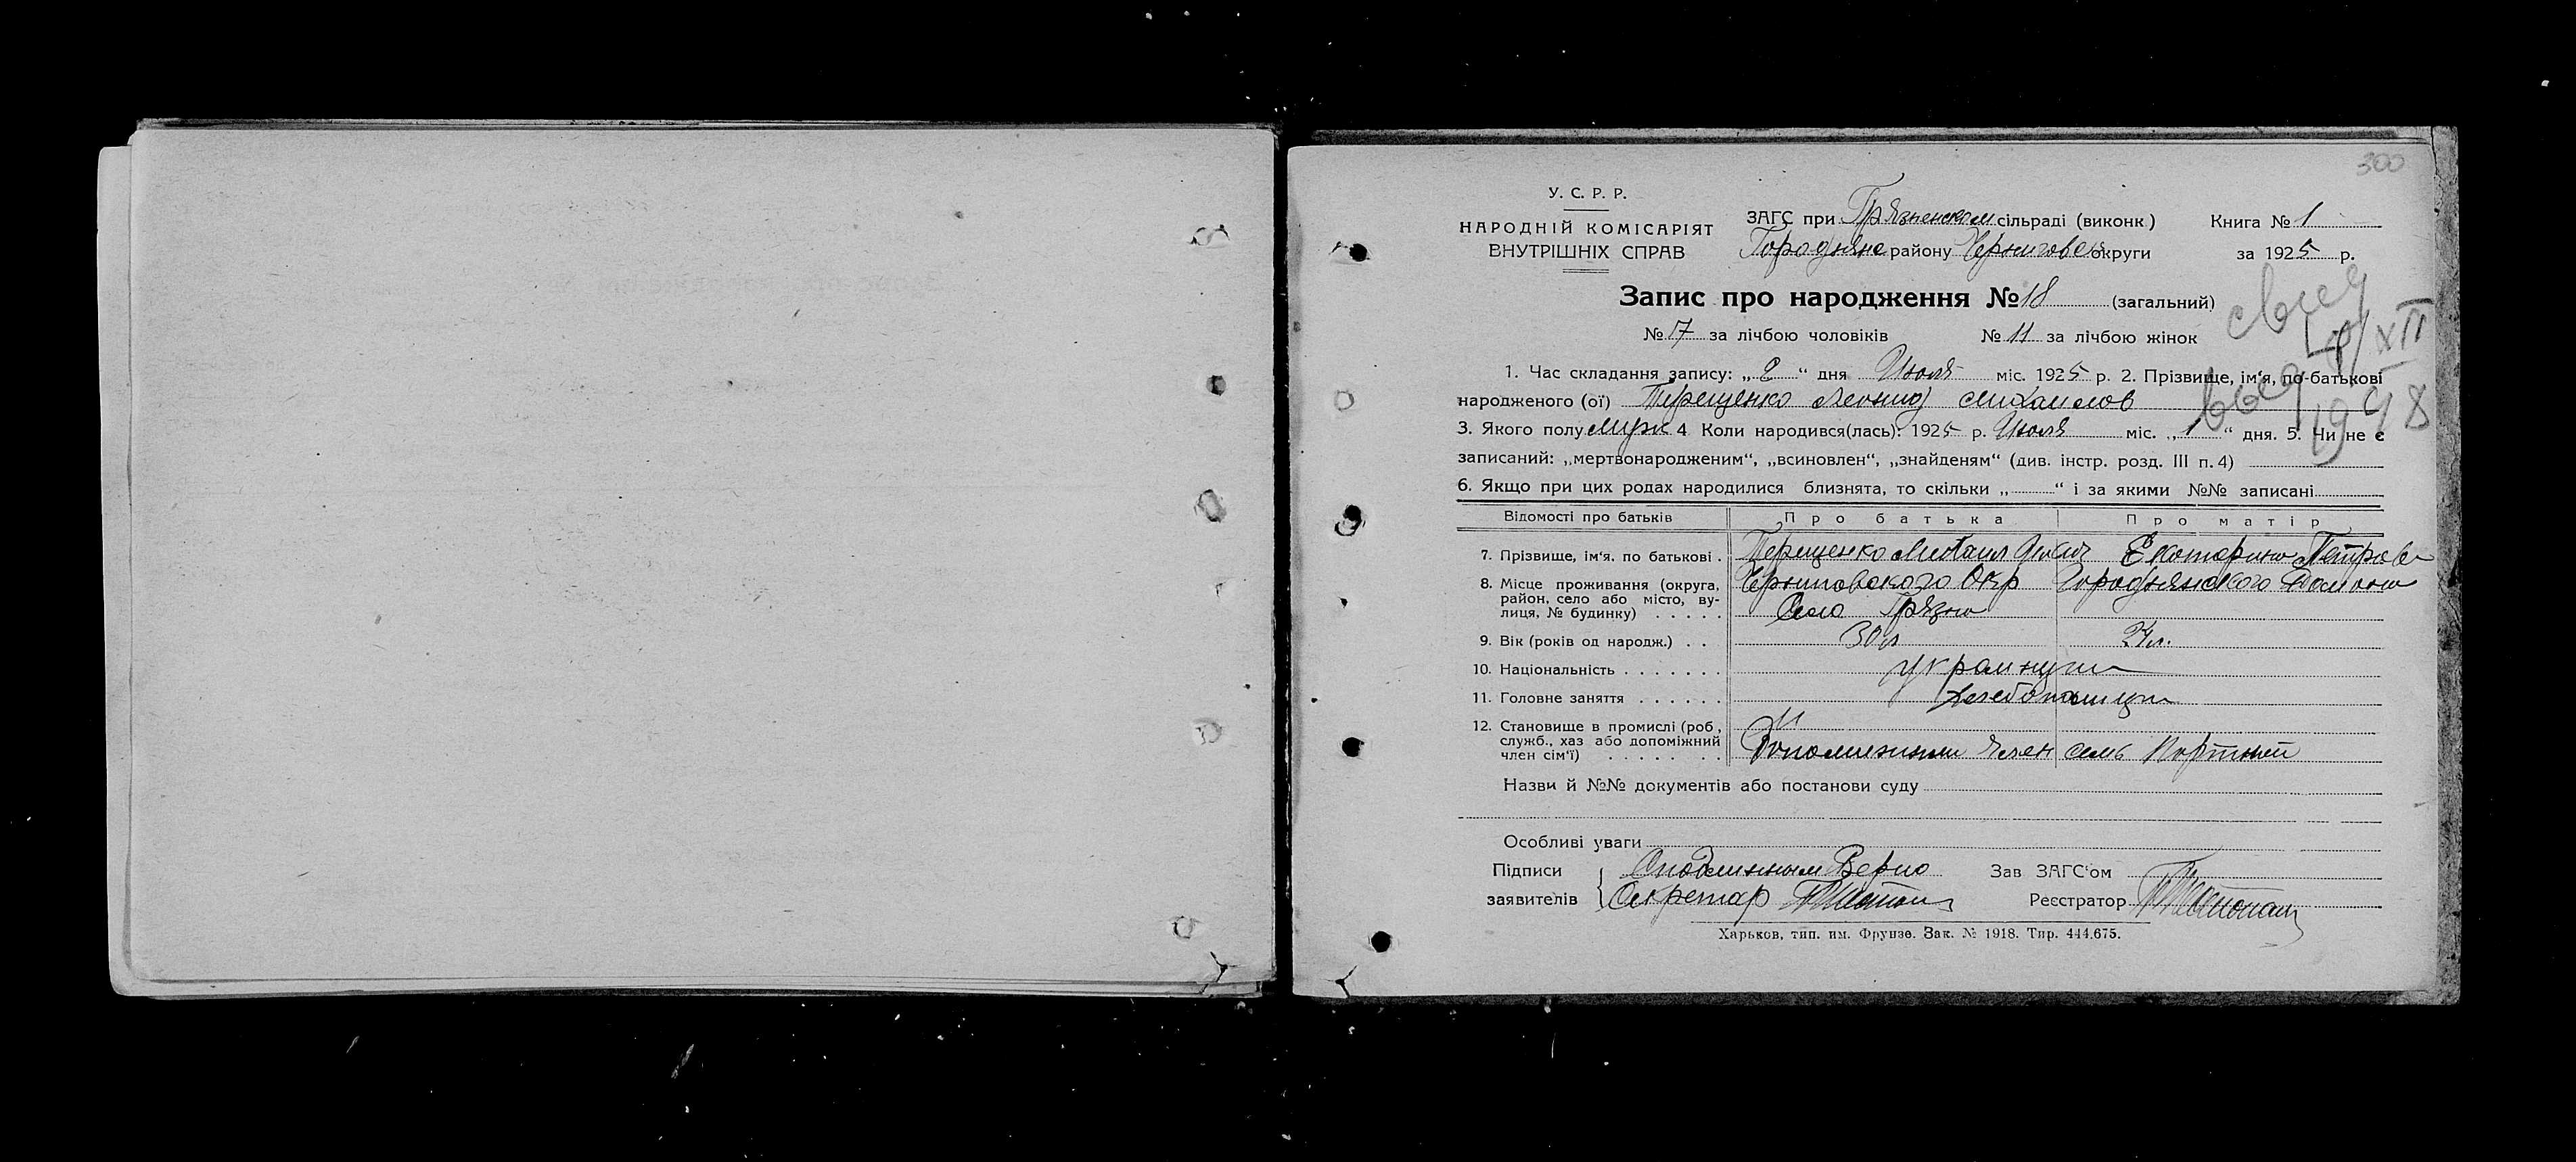 300
У. С. Р. Р.
НАРОДНІЙ КОМІСАРІЯТ
ВНУТРІШНІХ СПРАВ
ЗАГС при Грязненском сільраді (виконк)
Городняне району Чернигове округи
Книга № 1
за 1925 р.
Запис про народження № 18 (загальний)
№ 17 за лічбою чоловіків № 11 за лічбою жінок
1. Час складання запису: „ 2 “ дня Июля міс. 1925 р. 2. Прізвище, ім‘я, по-батькові
народженого (ої) Терещенко Леонид Михаилов
3. Якого полу Муж 4 Коли народився(лась): 1925 р. Июля міс. „ 1 “ дня. 5. Чи не є
записаний: „мертвонародженим“, „всиновлен“, „знайденям“ (див. інстр. розд. III п. 4)
6. Якщо при цих родах народилися близнята, то скільки „ “ і за якими №№ записані
XII
1948
Відомості про батьків Про батька Про матір
7. Прізвище, ім‘я. по батькові . Терещенко Михаил Екатерина Петров
8. Місце проживання (округа, Черниговского Окр Городнянского Района
район, село або місто, ву- Село Грязна
лиця, № будинку) . . . . .
9. Вік (років од народж.) . . 30 л 24 л.
10. Національність . . . . . . . украинци
11. Головне заняття . . . . . . хлебопашци
12. Становище в промислі (роб,
служб., хаз або допоміжний
член сім‘ї) . . . . . . . член семь Портной
Назви й №№ документів або постанови суду
Особливі уваги
Підписи Сподлинным Верно Зав ЗАГС‘ом
заявителів Секретар Реєстратор
Харьков, тип. им. Фрунзе. Зак. № 1918. Тир. 444.675.